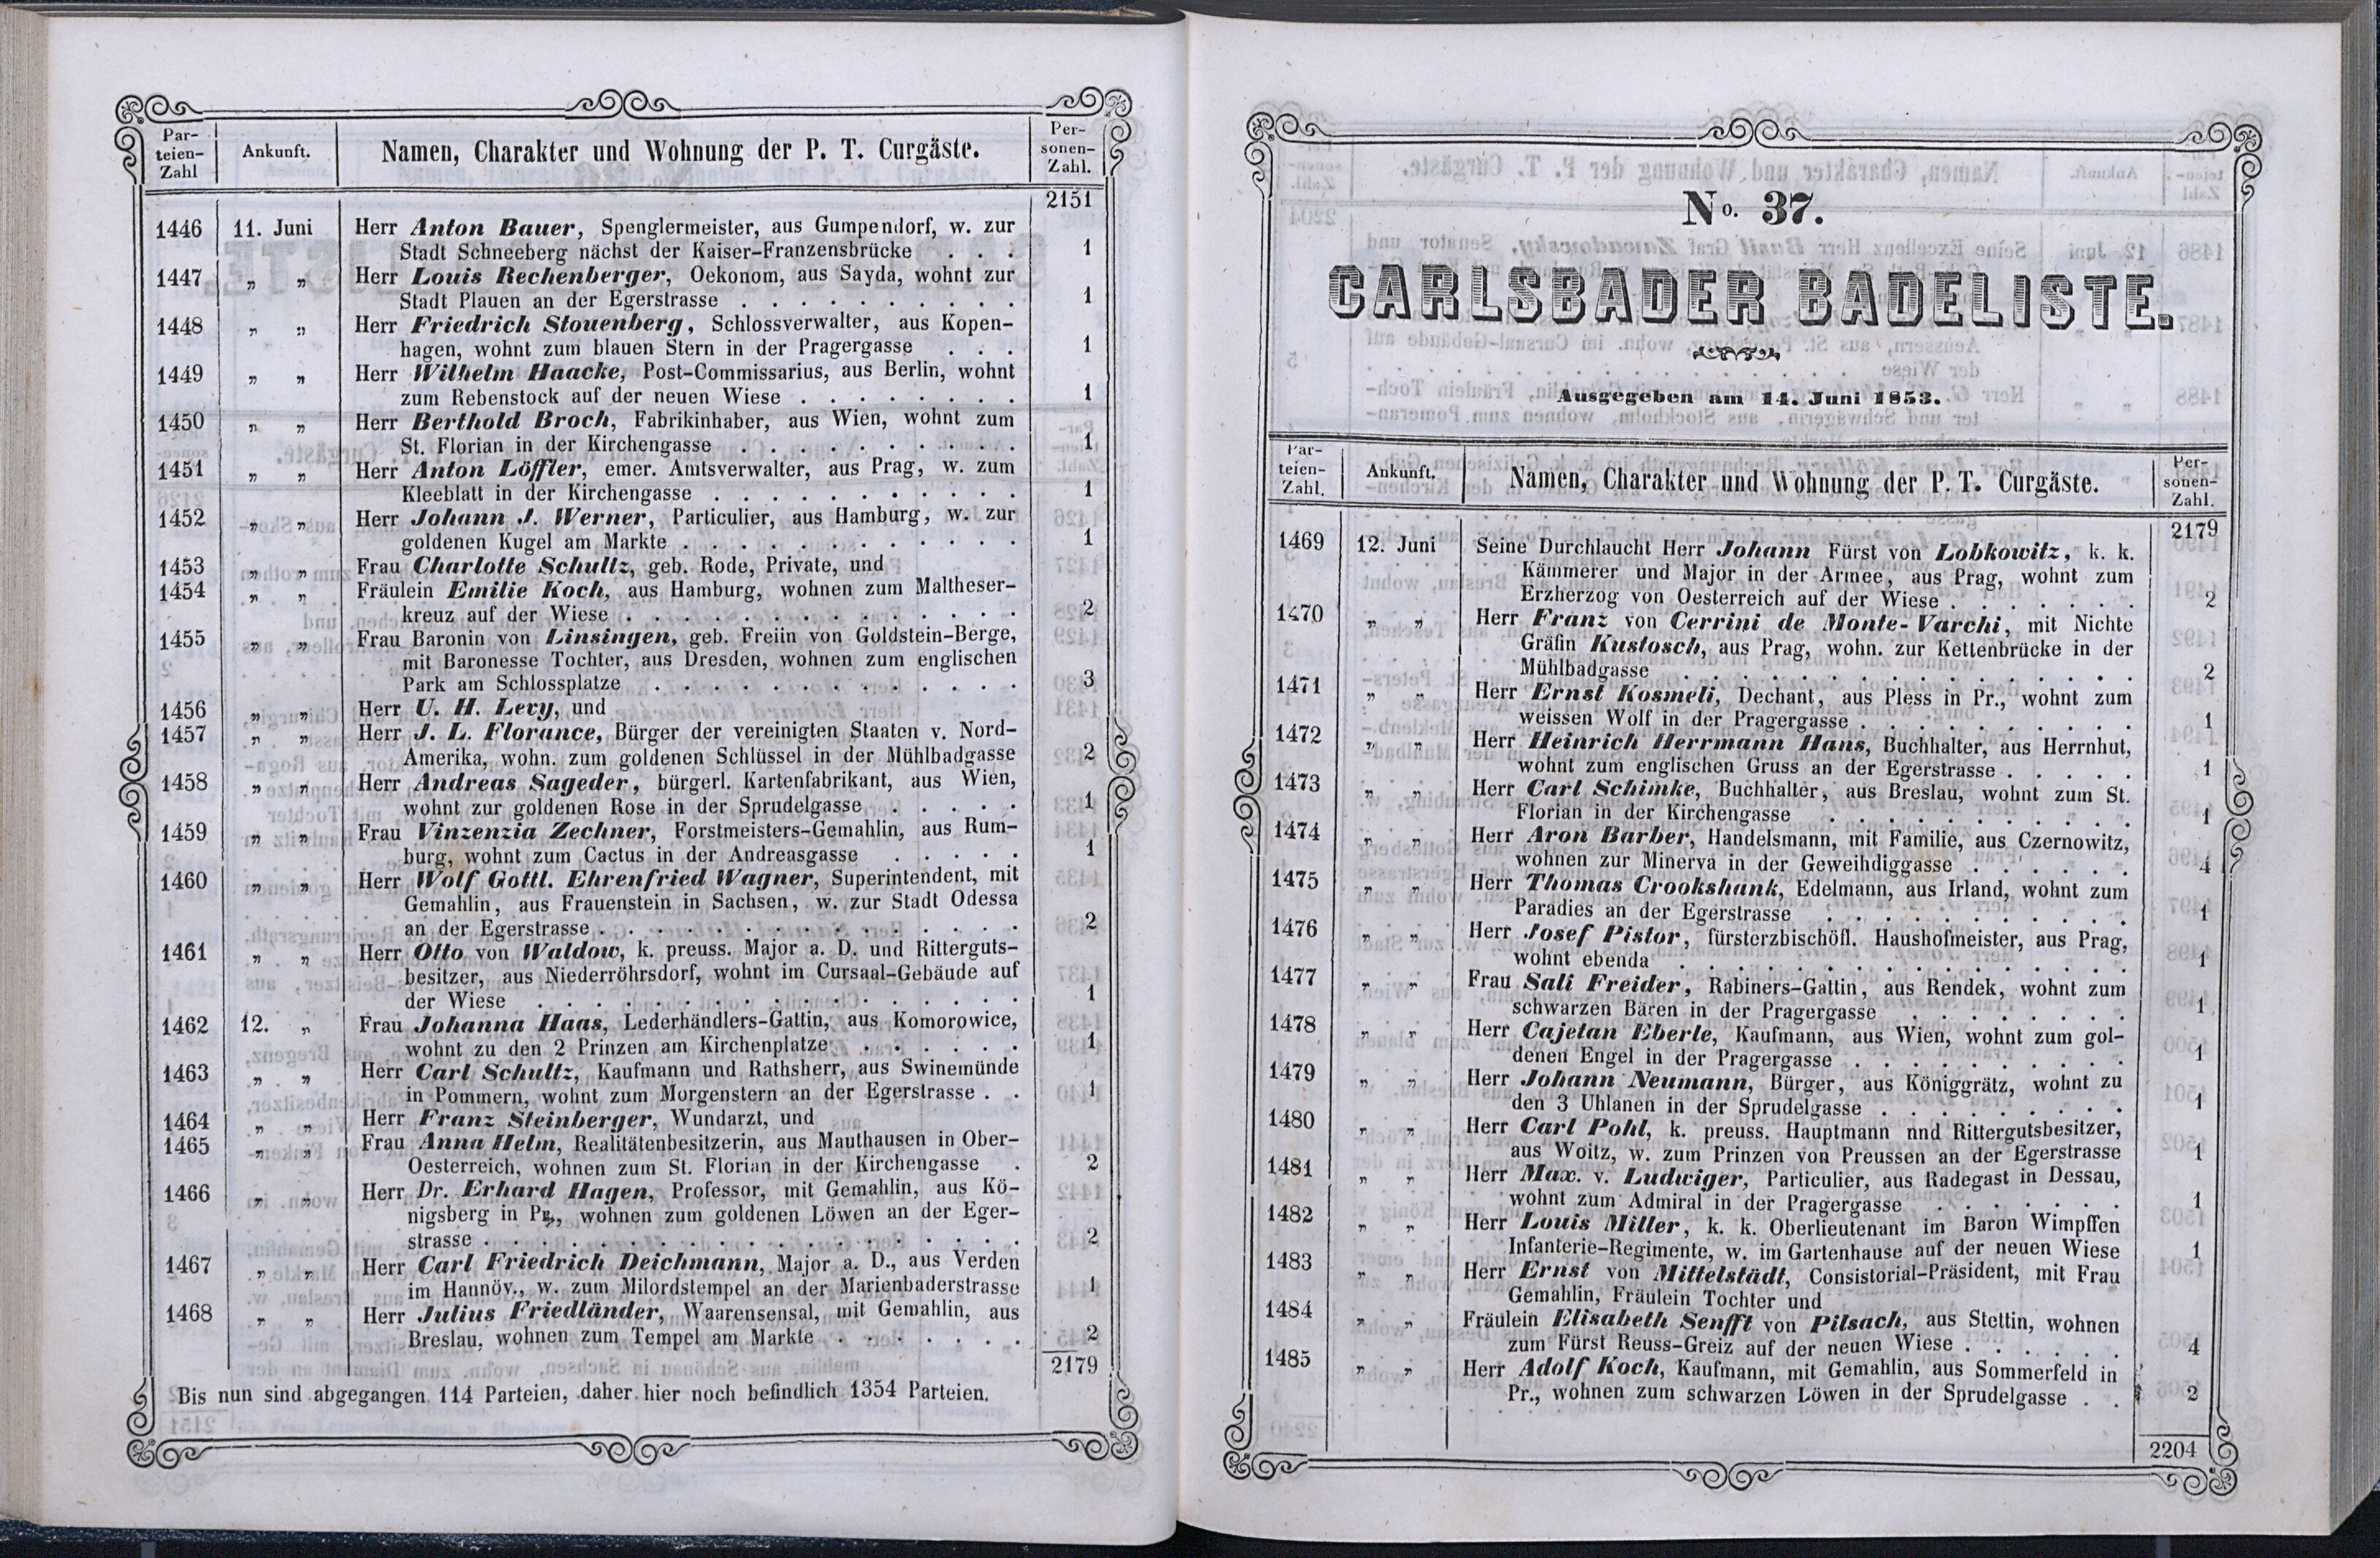 Par-
teien-
Zahl
Ankunft.
Namen, Charakter und Wohnung der P. T. Curgäste.
Per-
sonen-
Zahl.
2151
1446 11. Juni Herr Anton Bauer, Spenglermeister, aus Gumpendorf, w. zur
Stadt Schneeberg nächst der Kaiser-Franzensbrücke . . . 1
1447 „ „ Herr Louis Rechenberger, Oekonom, aus Sayda, wohnt zur
Stadt Plauen an der Egerstrasse . . . . . . . . . . 1
1448 „ „ Herr Friedrich Stouenberg, Schlossverwalter, aus Kopen-
hagen, wohnt zum blauen Stern in der Pragergasse . . . 1
1449 „ „ Herr Wilhelm Haacke, Post-Commissarius, aus Berlin, wohnt
zum Rebenstock auf der neuen Wiese . . . . . . . . 1
1450 „ „ Herr Berthold Broch, Fabrikinhaber, aus Wien, wohnt zum
St. Florian in der Kirchengasse . . . . . . . . . . 1
1451 „ „ Herr Anton Löffler, emer. Amtsverwalter, aus Prag, w. zum
Kleeblatt in der Kirchengasse . . . . . . . . . . . 1
1452 „ „ Herr Johann J. Werner, Particulier, aus Hamburg, w. zur
goldenen Kugel am Markte . . . . . . . . . . . . 1
1453 „ „ Frau Charlotte Schultz, geb. Rode, Private, und
1454 „ „ Fräulein Emilie Koch, aus Hamburg, wohnen zum Maltheser-
kreuz auf der Wiese . . . . . . . . . . . . . . 2
1455 „ „ Frau Baronin von Linsingen, geb. Freiin von Goldstein-Berge,
mit Baronesse Tochter, aus Dresden, wohnen zum englischen
Park am Schlossplatze . . . . . . . . . . . . . 3
1456 „ „ Herr U. H. Levy, und
1457 „ „ Herr J. L. Florance, Bürger der vereinigten Staaten v. Nord-
Amerika, wohn. zum goldenen Schlüssel in der Mühlbadgasse 2
1458 „ „ Herr Andreas Sageder, bürgerl. Kartenfabrikant, aus Wien,
wohnt zur goldenen Rose in der Sprudelgasse . . . . . 1
1459 „ „ Frau Vinzenzia Zechner, Forstmeisters-Gemahlin, aus Rum-
burg, wohnt zum Cactus in der Andreasgasse . . . . . 1
1460 „ „ Herr Wolf Gottl. Ehrenfried Wagner, Superintendent, mit
Gemahlin, aus Frauenstein in Sachsen, w. zur Stadt Odessa
an der Egerstrasse . . . . . . . . . . . . . . . 2
1461 „ „ Herr Otto von Waldow, k. preuss. Major a. D. und Ritterguts-
besitzer, aus Niederröhrsdorf, wohnt im Cursaal-Gebäude auf
der Wiese . . . . . . . . . . . . . . . . . 1
1462 12. „ Frau Johanna Haas, Lederhändlers-Gattin, aus Komorowice,
wohnt zu den 2 Prinzen am Kirchenplatze . . . . . . 1
1463 „ „ Herr Carl Schultz, Kaufmann und Rathsherr, aus Swinemünde
in Pommern, wohnt zum Morgenstern an der Egerstrasse . . 1
1464 „ „ Herr Franz Steinberger, Wundarzt, und
1465 „ „ Frau Anna Helm, Realitätenbesitzerin, aus Mauthausen in Ober-
Oesterreich, wohnen zum St. Florian in der Kirchengasse . 2
1466 „ „ Herr Dr. Erhard Hagen, Professor, mit Gemahlin, aus Kö-
nigsberg in Pr., wohnen zum goldenen Löwen an der Eger-
strasse . . . . . . . . . . . . . . . . . . . 2
1467 „ „ Herr Carl Friedrich Deichmann, Major a. D., aus Verden
im Hannöv., w. zum Milordstempel an der Marienbaderstrasse 1
1468 „ „ Herr Julius Friedländer, Waarensensal, mit Gemahlin, aus
Breslau, wohnen zum Tempel am Markte . . . . . . . 2
2179
Bis nun sind abgegangen 114 Parteien, daher hier noch befindlich 1354 Parteien.
No. 37.
CARLSBADER BADELISTE.
Ausgegeben am 14. Juni 1853.
Par-
teien-
Zahl.
Ankunft.
Namen, Charakter und Wohnung der P. T. Curgäste.
Per-
sonen-
Zahl.
2179
1469 12. Juni Seine Durchlaucht Herr Johann Fürst von Lobkowitz, k. k.
Kämmerer und Major in der Armee, aus Prag, wohnt zum
Erzherzog von Oesterreich auf der Wiese . . . . . . . 2
1470 „ „ Herr Franz von Cerrini de Monte-Varchi, mit Nichte
Gräfin Kustosch, aus Prag, wohn. zur Kettenbrücke in der
Mühlbadgasse . . . . . . . . . . . . . . . . 2
1471 „ „ Herr Ernst Kosmeli, Dechant, aus Pless in Pr., wohnt zum
weissen Wolf in der Pragergasse . . . . . . . . . . 1
1472 „ „ Herr Heinrich Herrmann Hans, Buchhalter, aus Herrnhut,
wohnt zum englischen Gruss an der Egerstrasse . . . . . 1
1473 „ „ Herr Carl Schimke, Buchhalter, aus Breslau, wohnt zum St.
Florian in der Kirchengasse . . . . . . . . . . . 1
1474 „ „ Herr Aron Barber, Handelsmann, mit Familie, aus Czernowitz,
wohnen zur Minerva in der Geweihdiggasse . . . . . . 4
1475 „ „ Herr Thomas Crookshank, Edelmann, aus Irland, wohnt zum
Paradies an der Egerstrasse . . . . . . . . . . . 1
1476 „ „ Herr Josef Pistor, fürsterzbischöfl. Haushofmeister, aus Prag,
wohnt ebenda . . . . . . . . . . . . . . . . 1
1477 „ „ Frau Sali Freider, Rabiners-Gattin, aus Rendek, wohnt zum
schwarzen Bären in der Pragergasse . . . . . . . . 1
1478 „ „ Herr Cajetan Eberle, Kaufmann, aus Wien, wohnt zum gol-
denen Engel in der Pragergasse . . . . . . . . . . 1
1479 „ „ Herr Johann Neumann, Bürger, aus Königgrätz, wohnt zu
den 3 Uhlanen in der Sprudelgasse . . . . . . . . . 1
1480 „ „ Herr Carl Pohl, k. preuss. Hauptmann nnd Rittergutsbesitzer,
aus Woitz, w. zum Prinzen von Preussen an der Egerstrasse 1
1481 „ „ Herr Max. v. Ludwiger, Particulier, aus Radegast in Dessau,
wohnt zum Admiral in der Pragergasse . . . . . . . 1
1482 „ „ Herr Louis Miller, k. k. Oberlieutenant im Baron Wimpffen
Infanterie-Regimente, w. im Gartenhause auf der neuen Wiese 1
1483 „ „ Herr Ernst von Mittelstädt, Consistorial-Präsident, mit Frau
Gemahlin, Fräulein Tochter und
1484 „ „ Fräulein Elisabeth Senfft von Pilsach, aus Stettin, wohnen
zum Fürst Reuss-Greiz auf der neuen Wiese . . . . . . 4
1485 „ „ Herr Adolf Koch, Kaufmann, mit Gemahlin, aus Sommerfeld in
Pr., wohnen zum schwarzen Löwen in der Sprudelgasse . . 2
2204